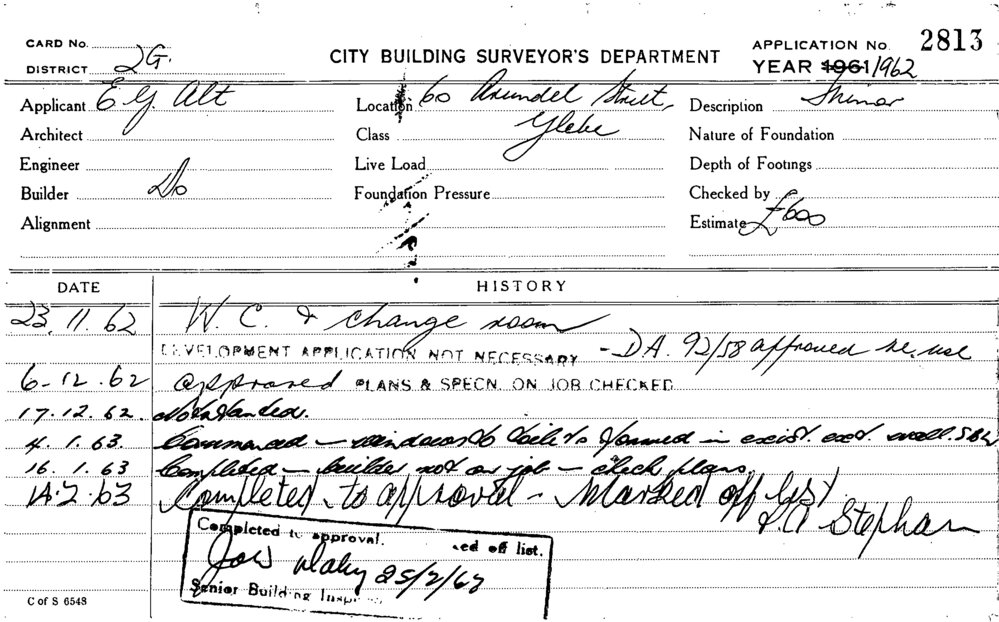 CARD No.
DISTRICT 2G.
CITY BUILDING SURVEYOR'S DEPARTMENT
APPLICATION No. 2813
YEAR 1961/1962
Applicant E G Alt
Location 60 Arundel Street, Glebe
Description Minor
Architect
Class
Nature of Foundation
Engineer
Live Load
Depth of Footings
Builder Do
Foundation Pressure
Checked by
Alignment
Estimate £600
DATE HISTORY
23.11.62 W.C. & change room
DEVELOPMENT APPLICATION NOT NECESSARY - DA. 92/58 approved re. use
6-12.62 approved PLANS & SPECN. ON JOB CHECKED
17.12.62. Not started.
4.1.63. Commenced - windows to toilets formed in exist. ext. wall.
16.1.63 Completed - builder not on job - check plans.
14.2.63 Completed to approval - Marked off list
Stephan
Completed to approval. ed off list.
25/2/63
Senior Building
C of S 6548